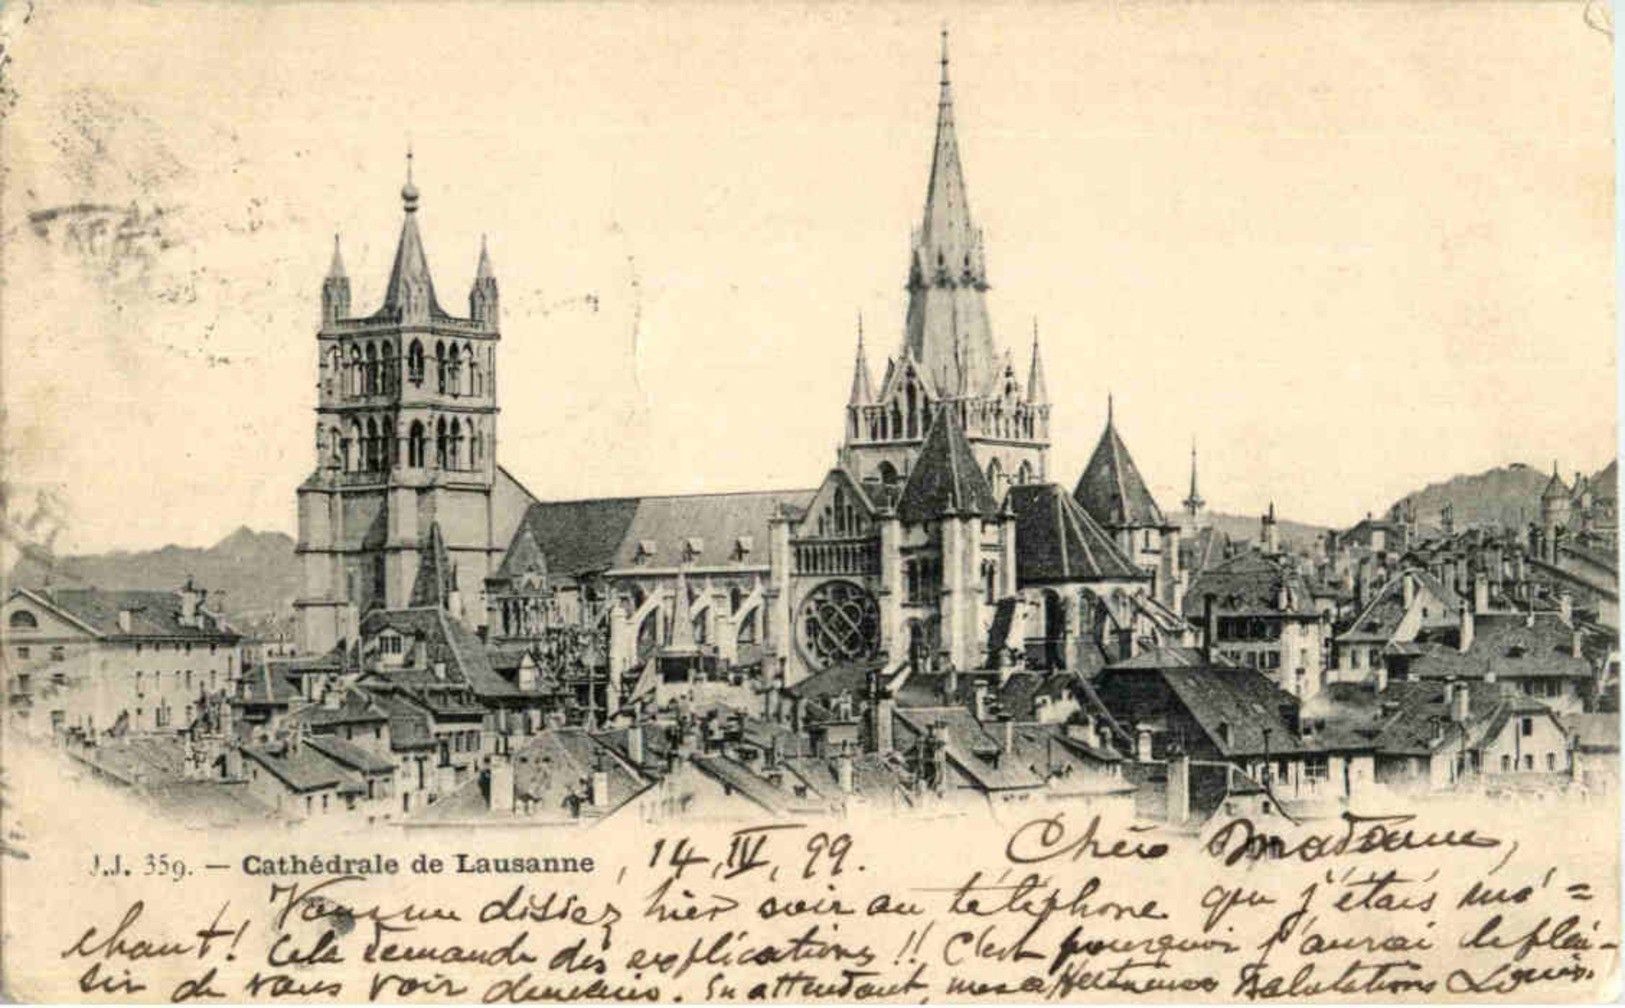 J.J. 359. — Cathédrale de Lausanne, 14, IV, 99. Chère Madame,
Vous me disiez hier soir au téléphone que j'étais mé=
chant! Cela demande des explications!! C'est pourquoi j'aurai le plai-
sir de vous voir demain. En attendant, mes affectueuses salutations Louis.